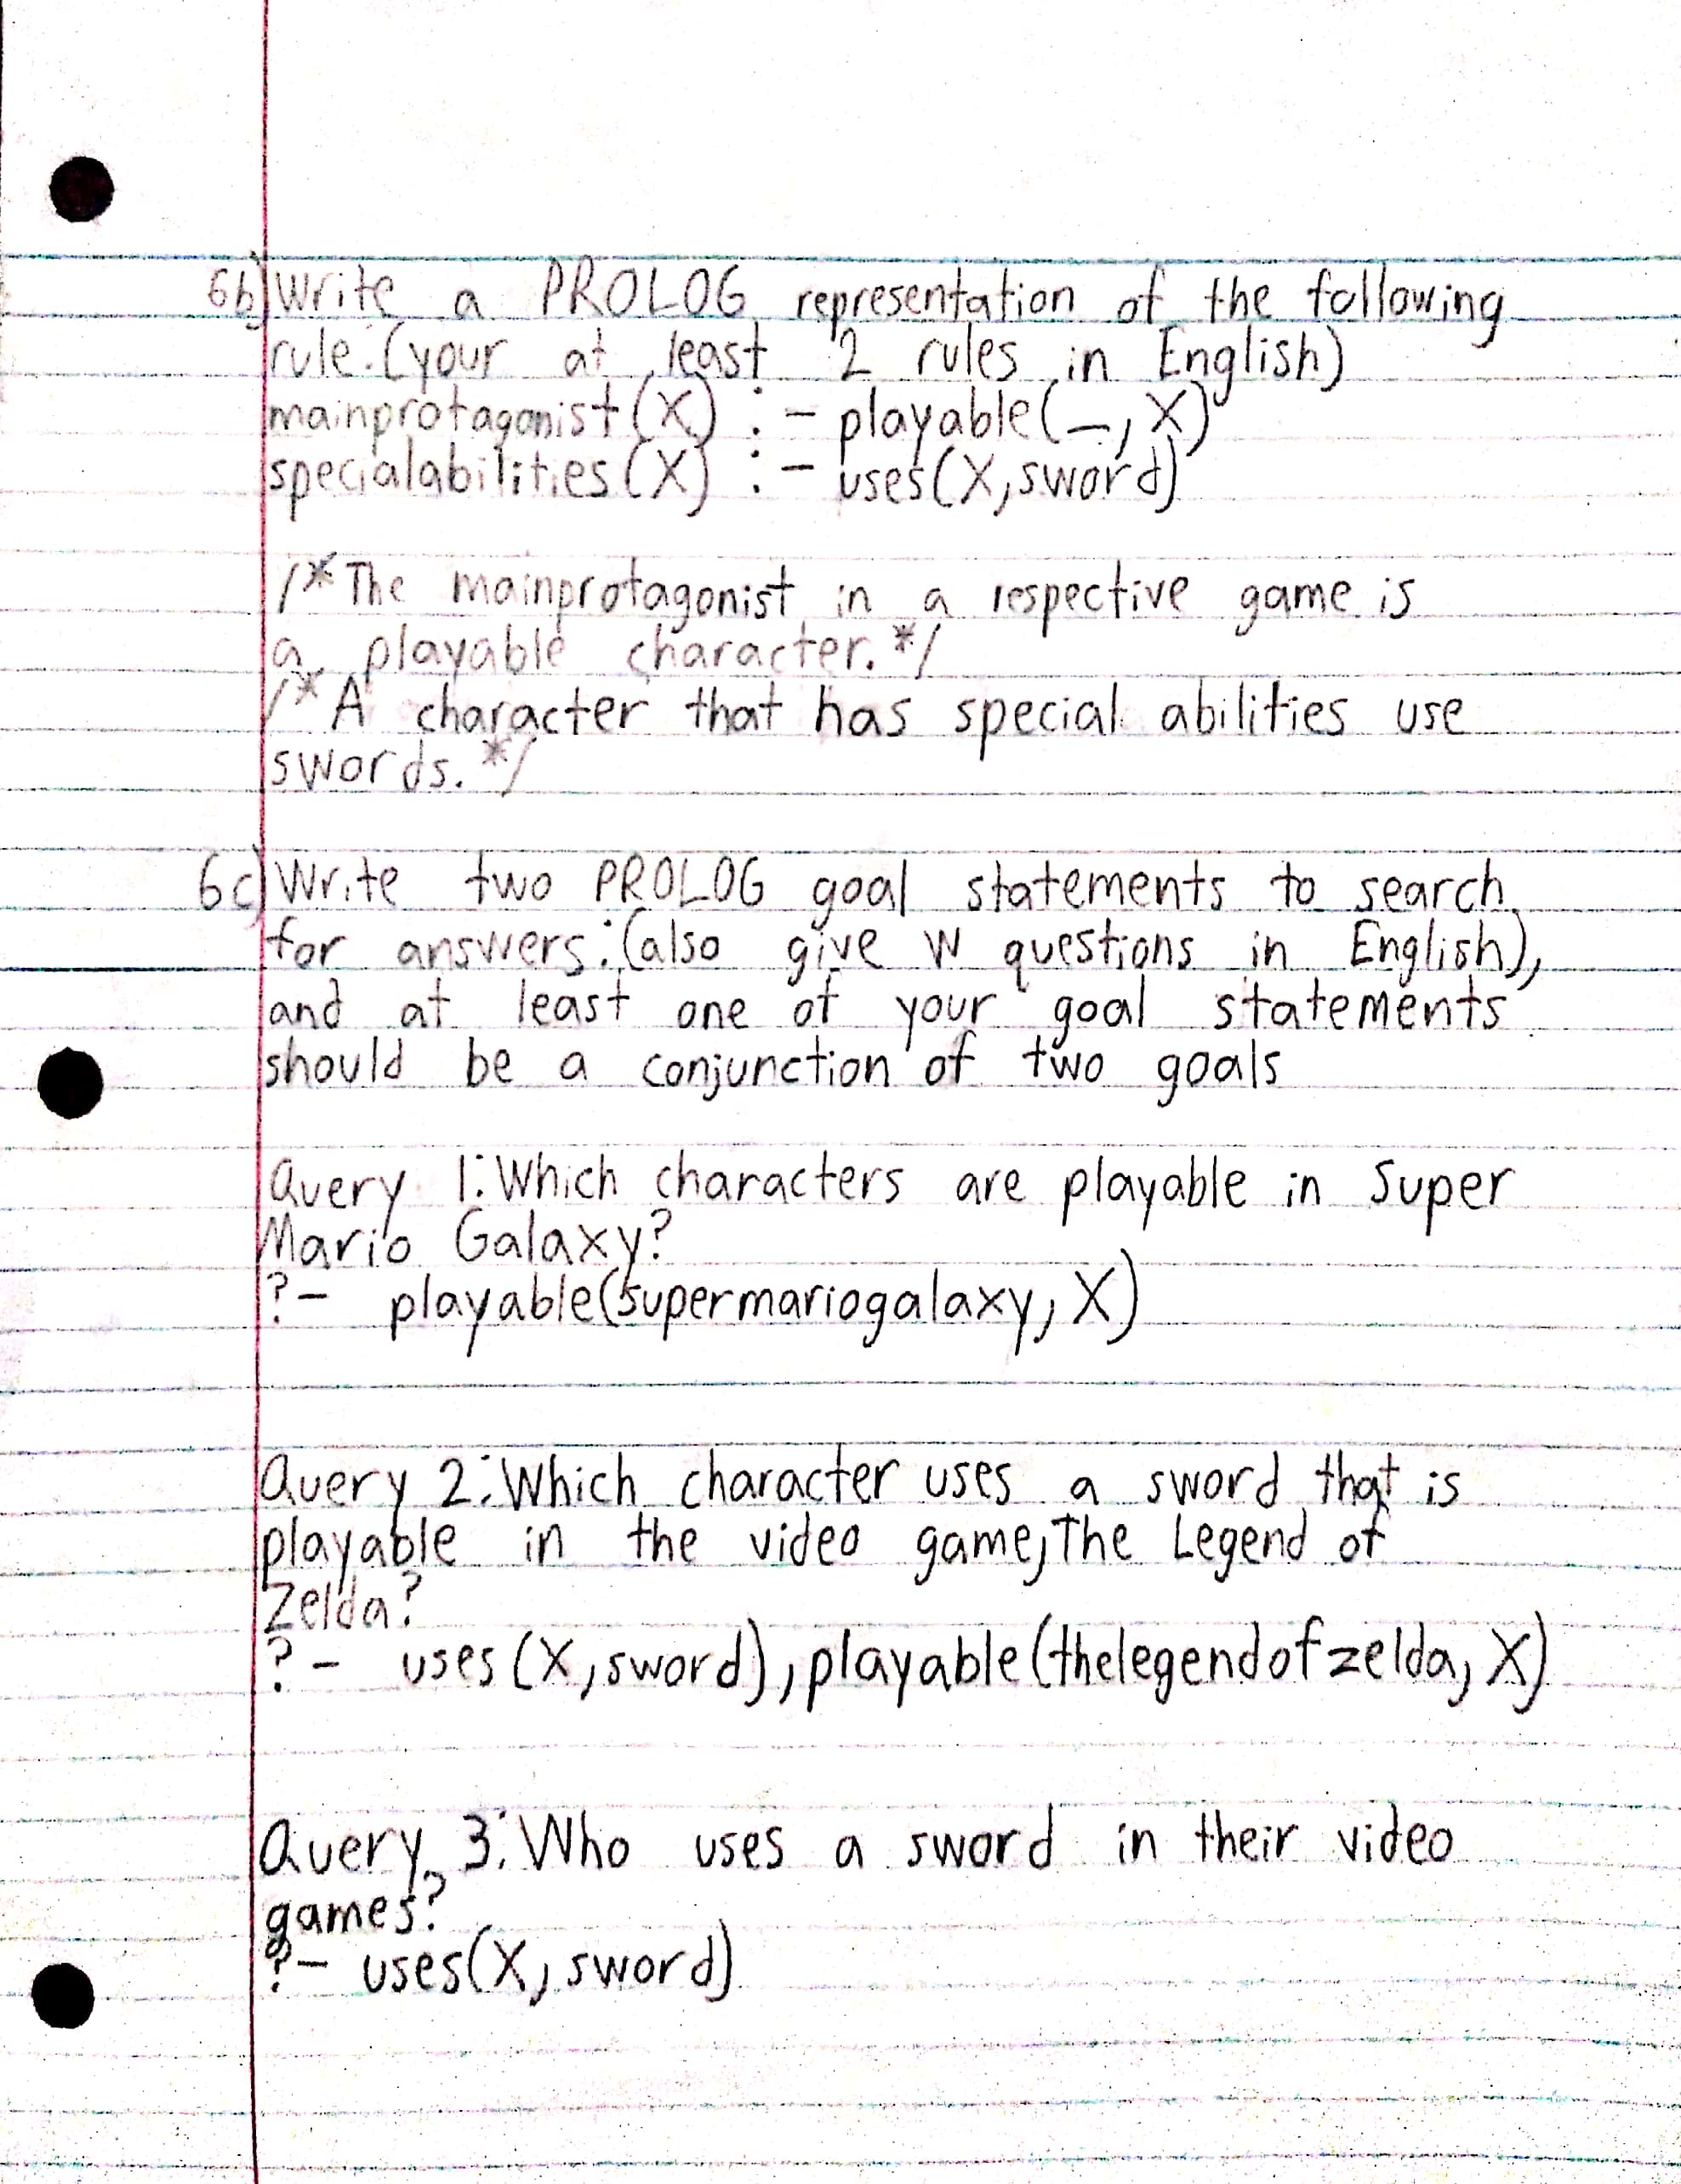 6b) Write a PROLOG representation of the following
rule. (your at least 2 rules in English)
mainprotagonist(X) :- playable(_, X)
specialabilities(X) :- uses(X, sword)
/* The mainprotagonist in a respective game is
a playable character. */
/* A character that has special abilities use
swords. */
6c) Write two PROLOG goal statements to search
for answers: (also give W questions in English),
and at least one of your goal statements
should be a conjunction of two goals
Query 1: Which characters are playable in Super
Mario Galaxy?
?- playable(supermariogalaxy, X)
Query 2: Which character uses a sword that is
playable in the video game, The Legend of
Zelda?
?- uses(X, sword), playable(thelegendofzelda, X)
Query 3: Who uses a sword in their video
games?
?- uses(X, sword)